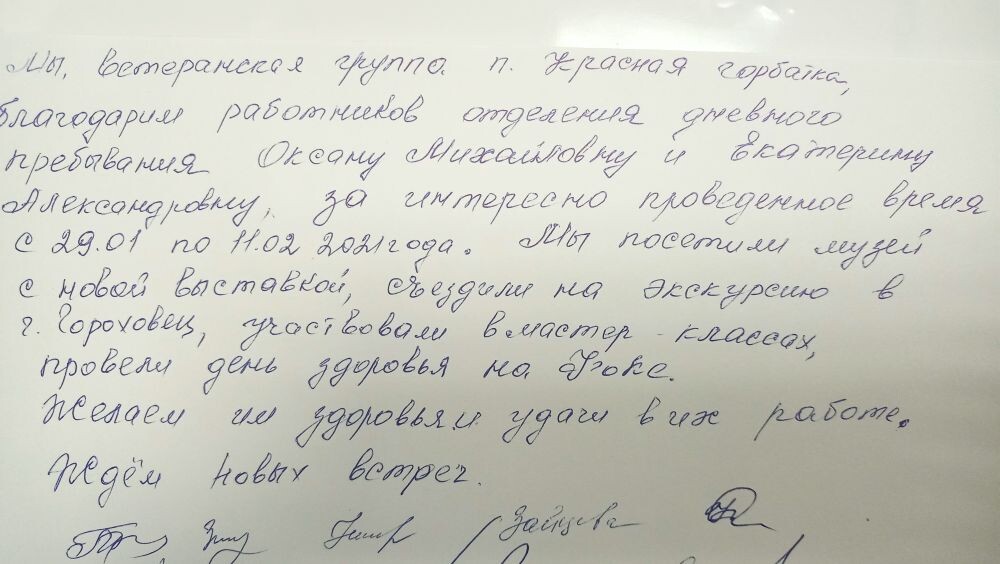 Мы, ветеранская группа п. Красная горбатка,
благодарим работников отделения дневного
пребывания Оксану Михайловну и Екатерину
Александровну, за интересно проведенное время
с 29.01 по 11.02 2021 года. Мы посетили музей
с новой выставкой, съездили на экскурсию в
г. Гороховец, участвовали в мастер-классах,
провели день здоровья на
Желаем им здоровья и удачи в их работе.
Ждём новых встреч.
Зайцева